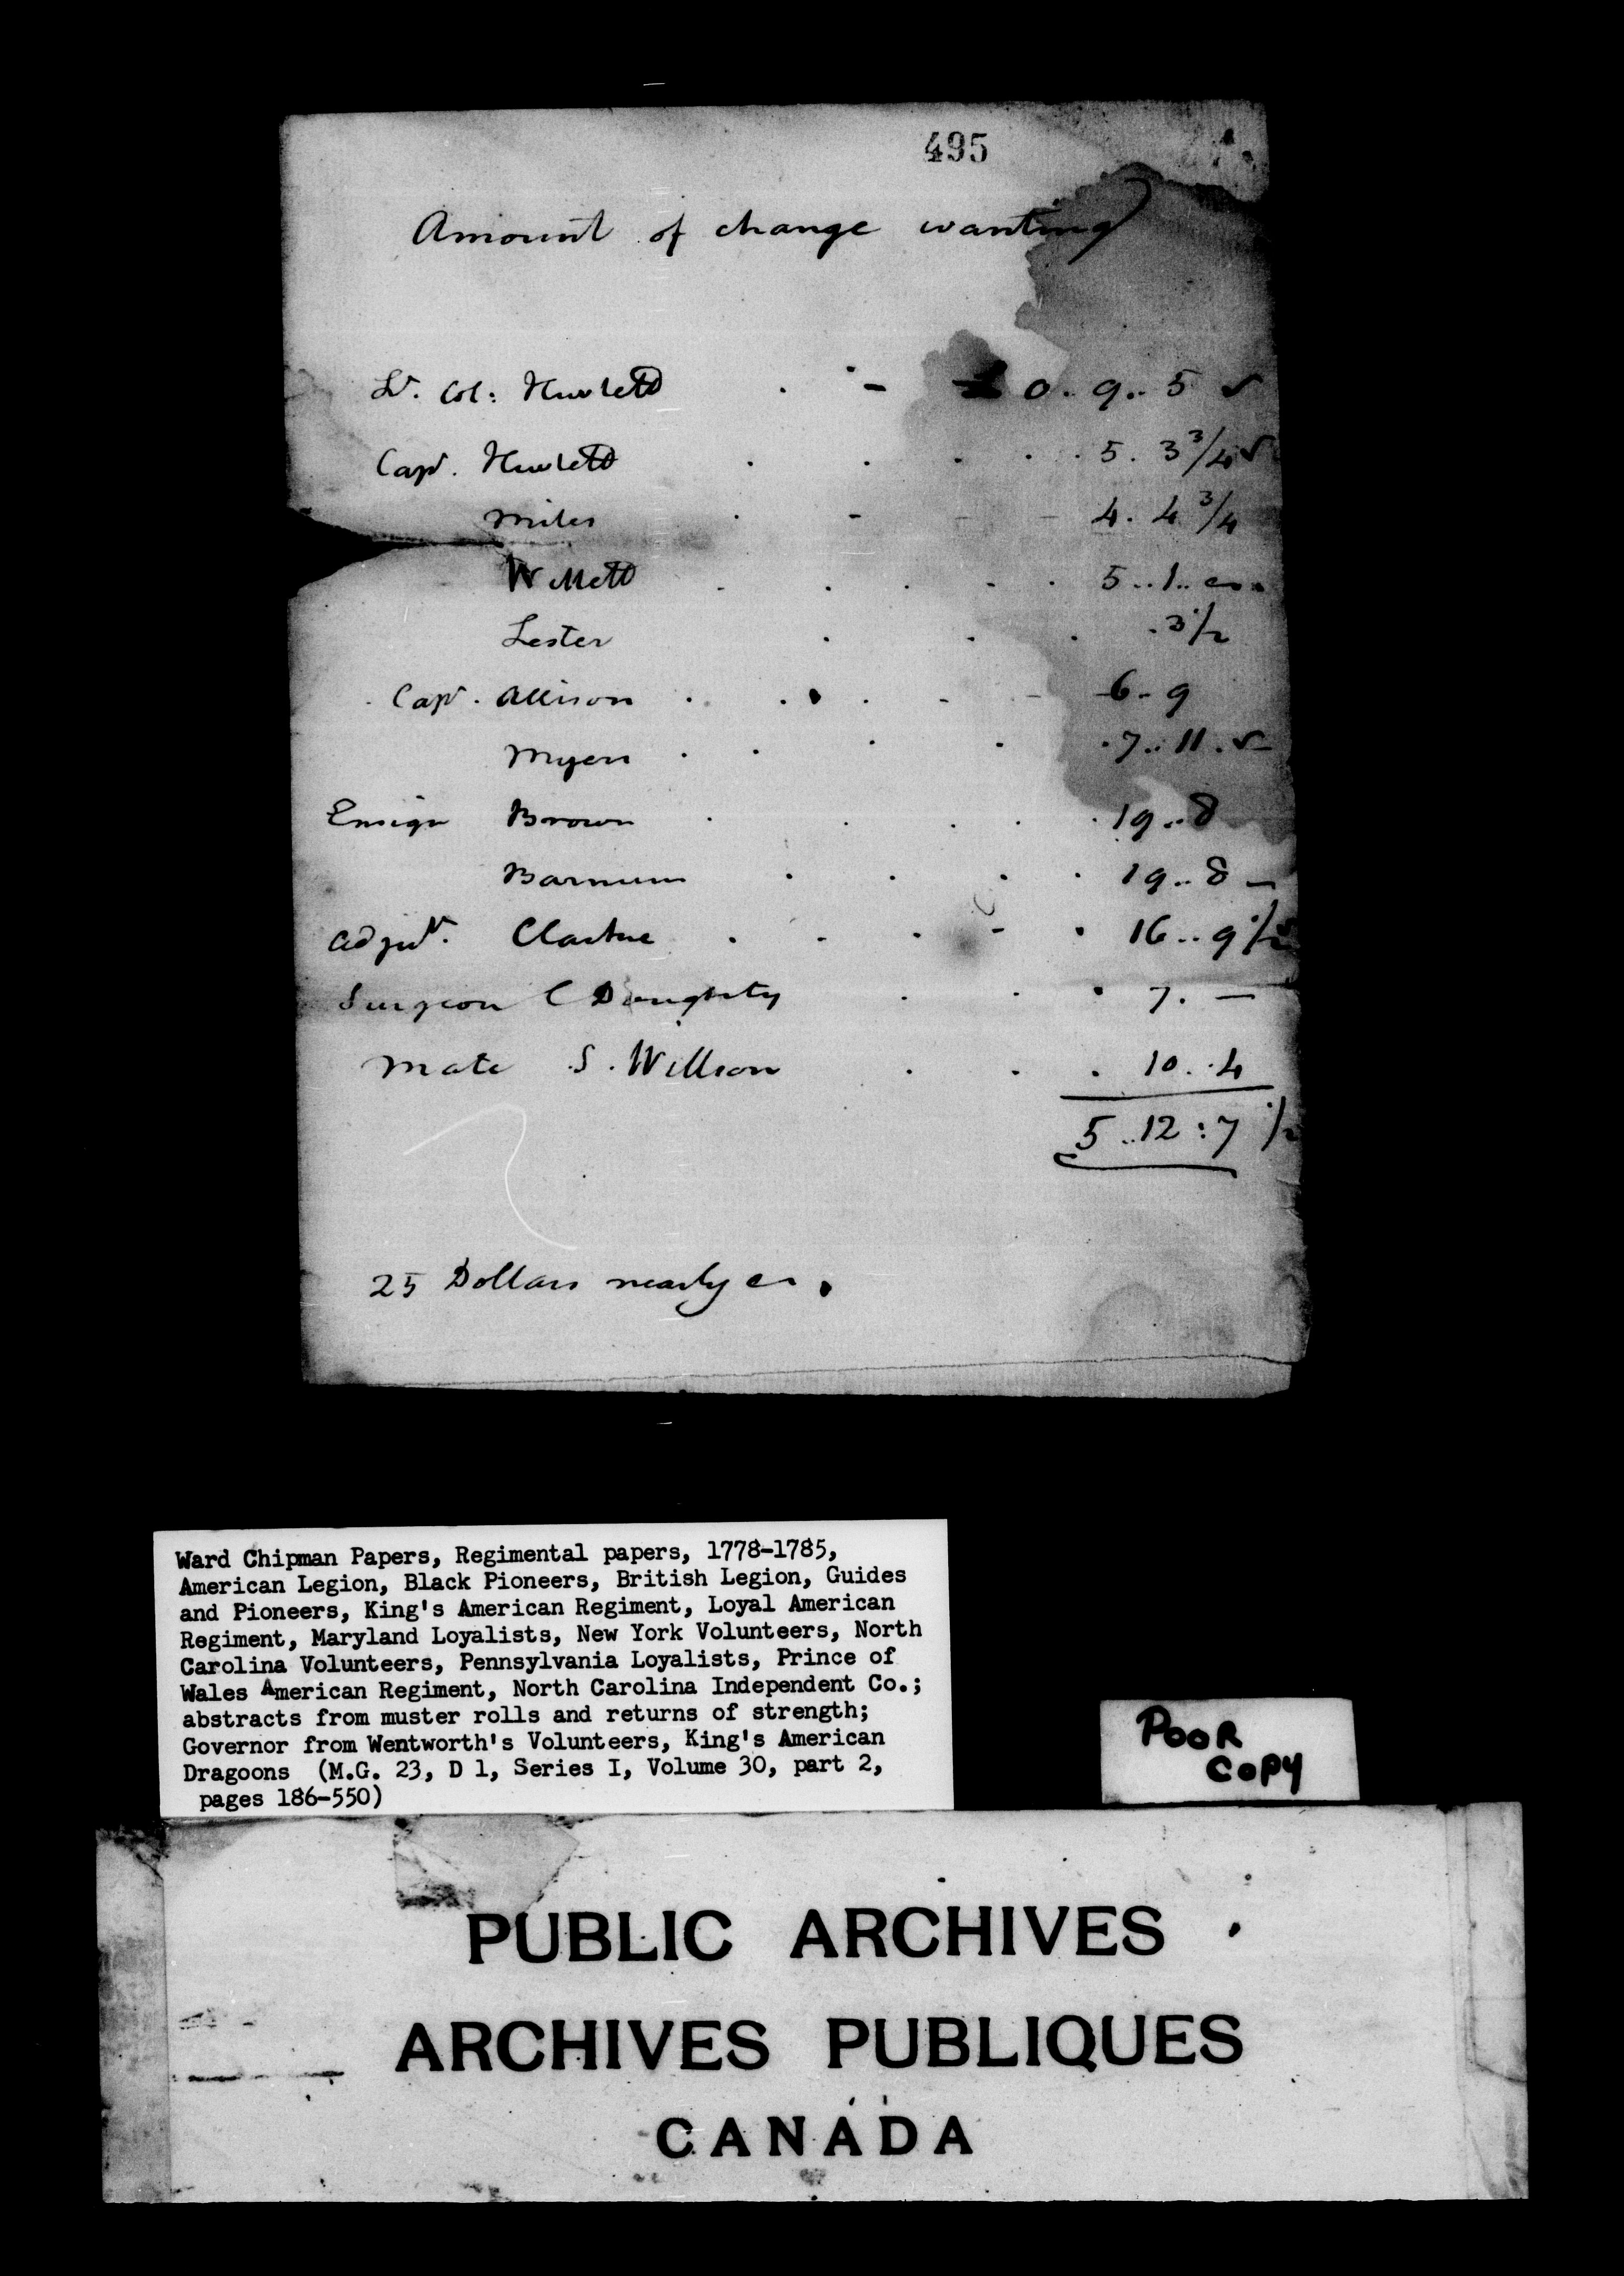 495
Amount of change wanting
Lt. Col: Hewlett . - £ 0. 9.. 5 ✓
Capt. Hewlett . . . . 5. 3 3/4 ✓
Miles . - - - 4. 4 3/4
Willett . . . - . 5..1..
Lester . . . . 3 1/2
Capt. Allison . . . . - - 6-9
Myers . . . . . 7..11. ✓
Ensign Brown . . . . . 19..8
Barnum . . . . 19..8 —
Adjut. Clarke . . . - . 16..9 1/2
Surgeon C Doughty . . . 7. —
Mate S. Willson . . . 10..4
5..12:7 1/2
25 Dollars nearly
Ward Chipman Papers, Regimental papers, 1778-1785,
American Legion, Black Pioneers, British Legion, Guides
and Pioneers, King's American Regiment, Loyal American
Regiment, Maryland Loyalists, New York Volunteers, North
Carolina Volunteers, Pennsylvania Loyalists, Prince of
Wales American Regiment, North Carolina Independent Co.;
abstracts from muster rolls and returns of strength;
Governor from Wentworth's Volunteers, King's American
Dragoons (M.G. 23, D 1, Series I, Volume 30, part 2,
pages 186-550)
POOR
COPY
PUBLIC ARCHIVES
ARCHIVES PUBLIQUES
CANADA